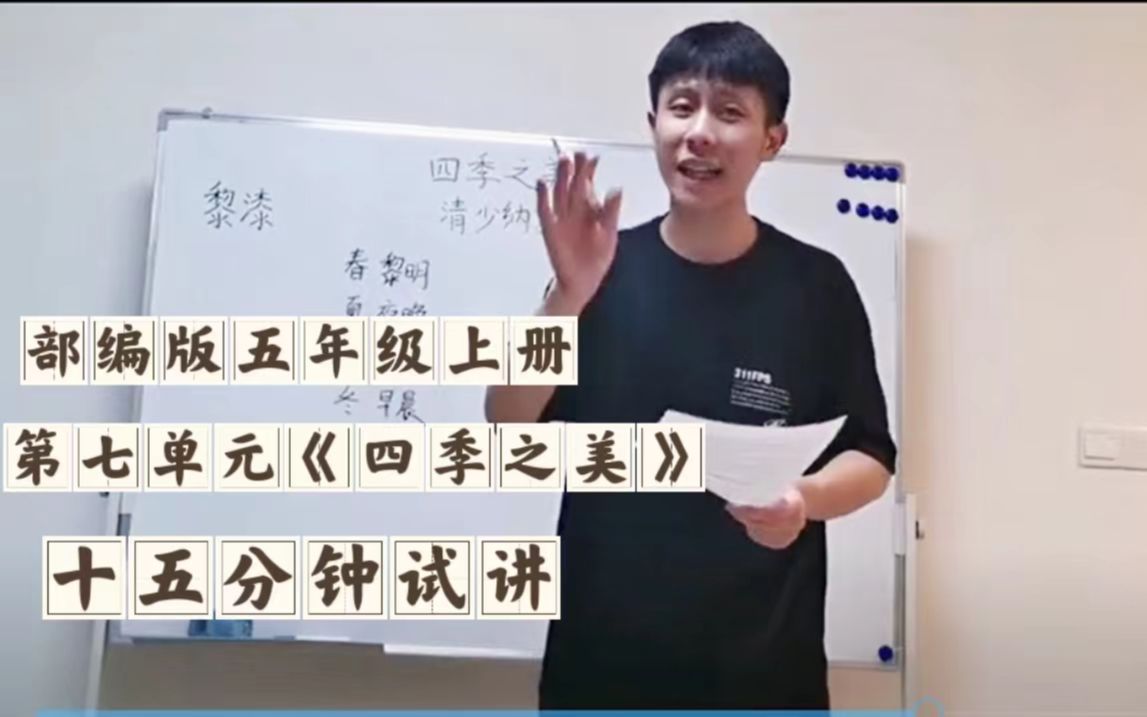 四季之美
黎漆
清少纳
春 黎明
夏 夜晚
冬 早晨
311FPS
部编版五年级上册
第七单元《四季之美》
十五分钟试讲